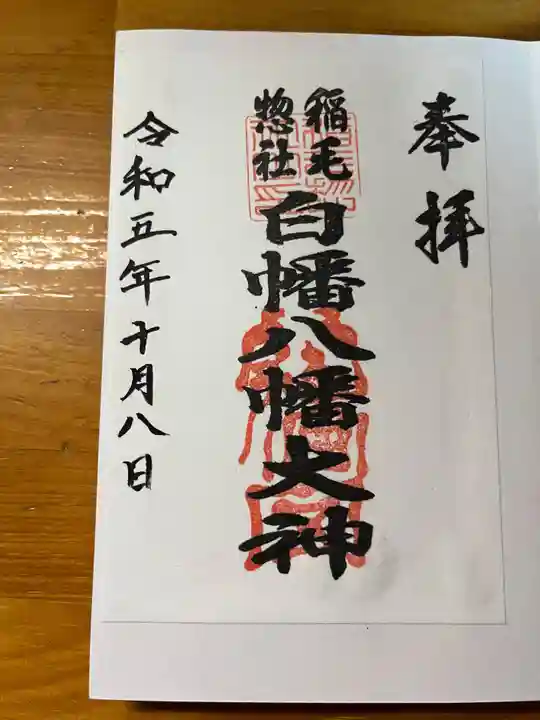 奉拝
稲毛
惣社
白幡八幡大神
令和五年十月八日